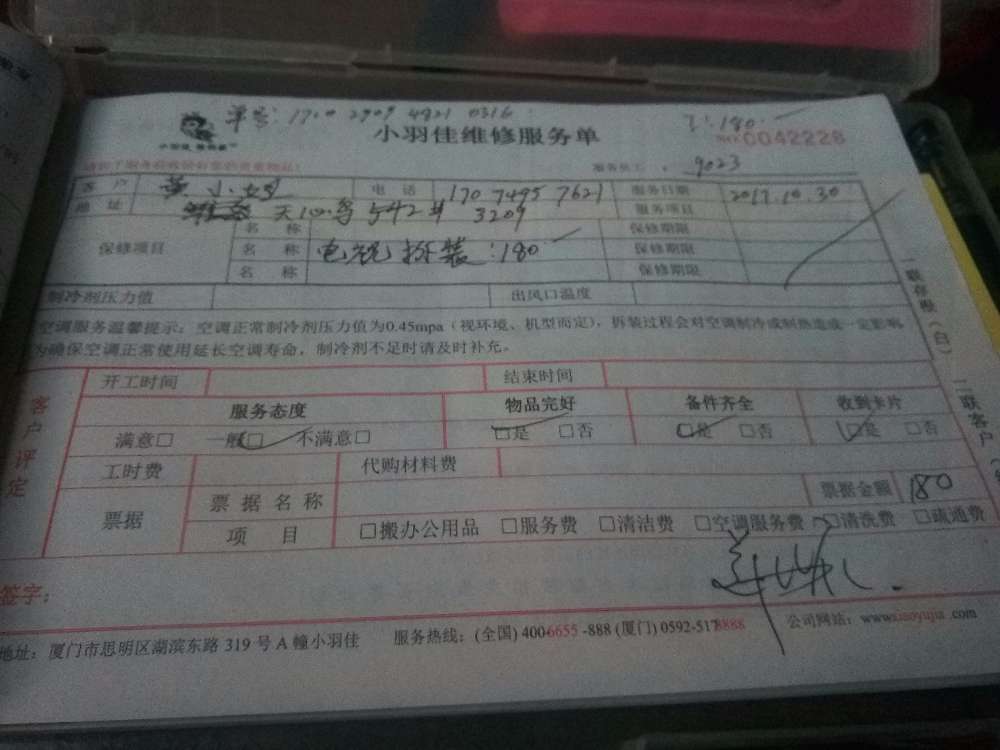 单号: 1700 2909 4821 0316
工:180.
小羽佳维修服务单
NO.0042228
服务员工: 9023
客户 黄小姐 电话 170 7495 7621 服务日期 2017.10.30
地址 天心岛542# 3209 服务项目
名称 保修期限
保修项目 名称 电视拆装:180 保修期限
名称 保修期限
制冷剂压力值 出风口温度
空调服务温馨提示:空调正常制冷剂压力值为0.45mpa(视环境、机型而定),拆装过程会对空调制冷或制热造成一定影响,
为确保空调正常使用延长空调寿命,制冷剂不足时请及时补充。
一联存根(白)
二联客户
客户评定
开工时间 结束时间
服务态度 物品完好 备件齐全 收到卡片
满意□ 一般□ 不满意□ □是 □否 □是 □否 □是 □否
工时费 代购材料费
票据 票据名称 票据金额 180
项目 □搬办公用品 □服务费 □清洁费 □空调服务费 □清洗费 □疏通费
签字:
地址:厦门市思明区湖滨东路 319 号 A 幢小羽佳 服务热线:(全国) 400-6655-888 (厦门) 0592-5178888 公司网站:www.xiaoyujia.com